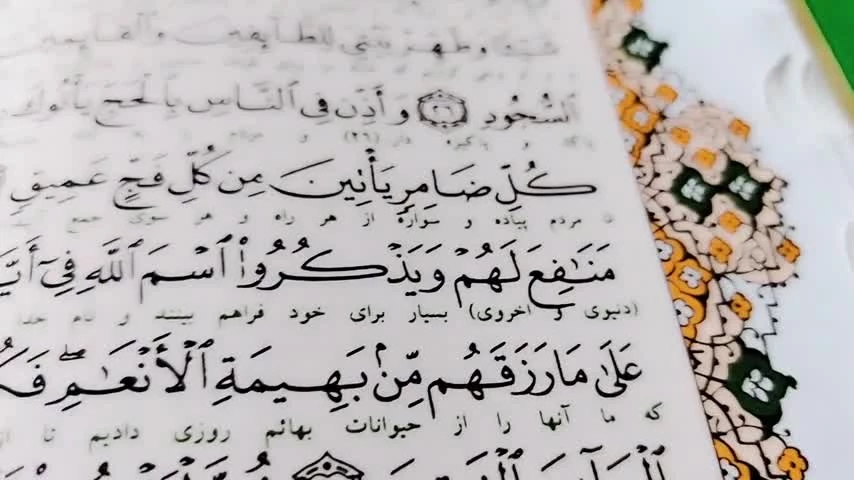 وطهر بيتي للطائفين والقائمين
ٱلسُّجُودِ ﴿٢٦﴾ وَأَذِّن فِى ٱلنَّاسِ بِٱلْحَجِّ يَأْتُوكَ
دار (٢٦) و
كُلِّ ضَامِرٍ يَأْتِينَ مِن كُلِّ فَجٍّ عَمِيقٍ
تا مردم پیاده و سواره از هر راه و هر سوی جمع
مَنَٰفِعَ لَهُمْ وَيَذْكُرُوا۟ ٱسْمَ ٱللَّهِ فِىٓ
(دنیوی و اخروی) بسیار برای خود فراهم بینند و نام خدا
عَلَىٰ مَا رَزَقَهُم مِّنۢ بَهِيمَةِ ٱلْأَنْعَٰمِ ۖ
که ما آنها را از حیوانات بهائم روزی دادیم تا از